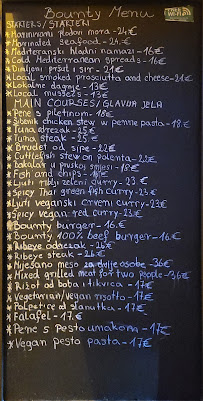 Bounty Menu
FREE Wi-Fi
STARTERS/STARTERI
*Marinirani plodovi mora - 24€
*Marinated seafood - 24€
*Mediteranski hladni namazi - 16€
*Cold Mediterranean spreads - 16€
*Dimljeni pršut i sir - 21€
*Local smoked prosciutto and cheese - 21€
*Lokalne dagnje - 13€
*Local mussels - 13€
MAIN COURSES/GLAVNA JELA
*Pene s piletinom - 18€
*Šibenik chicken stew w penne pasta - 18€
*Tuna odrezak - 25€
*Tuna steak - 25€
*Brudet od sipe - 22€
*Cuttlefish stew on polenta - 22€
*Bakalar u pivskoj smjesi - 18€
*Fish and chips - 18€
*Ljuti tajlj zeleni curry - 23€
*Spicy Thai green fish curry - 23€
*Ljuti veganski crveni curry - 23€
*Spicy vegan red curry - 23€
*Bounty burger - 16€
*Bounty 100% beef burger - 16€
*Ribeye odrezak - 26€
*Ribeye steak - 26€
*Miješano meso za dvije osobe - 36€
*Mixed grilled meat for two people - 36€
*Rižot od boba i tikvica - 17€
*Vegetarian/vegan risotto - 17€
*Polpetice od slanutka - 17€
*Falafel - 17€
*Pene s pesto umakom - 17€
*Vegan pesto pasta - 17€